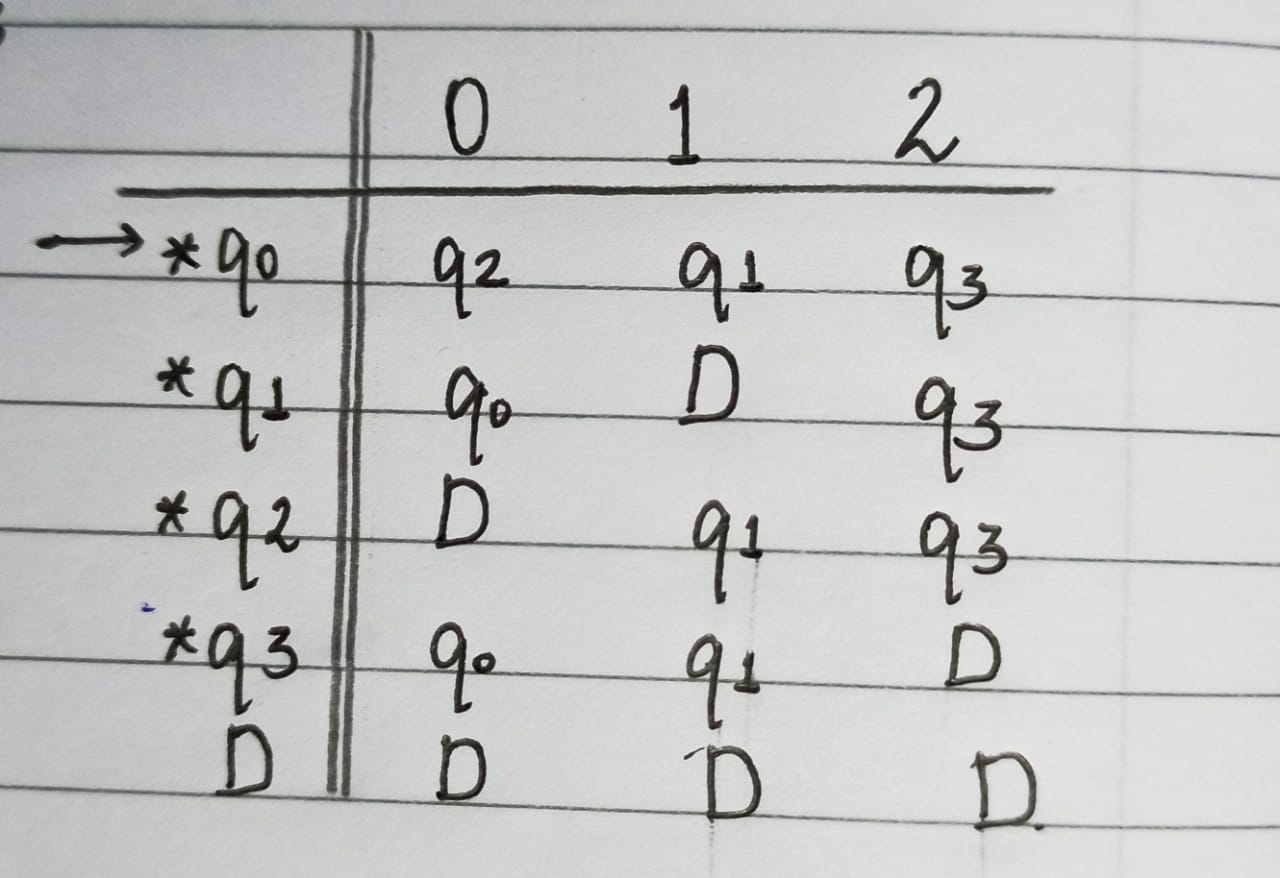 0 1 2
→ *q0 q2 q1 q3
*q1 q0 D q3
*q2 D q1 q3
*q3 q0 q1 D
D D D D.